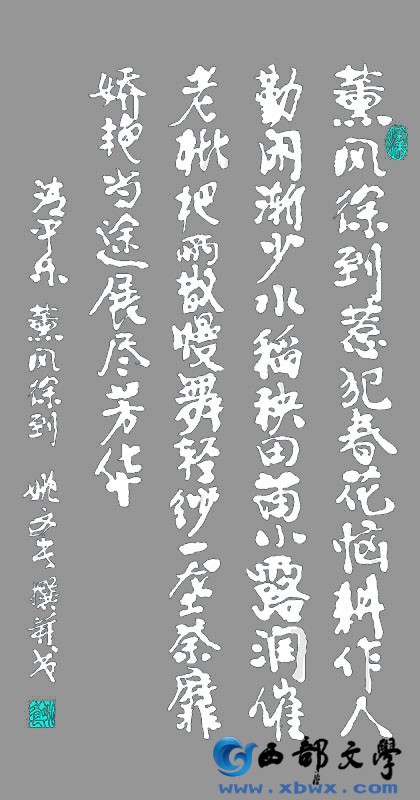 薰风徐到惹犯春花恼耕作人
勤闲渐少水稻秧田苗小露润催
老枇杷雨散慢舞轻纱一垄荼靡
娇艳当途展尽芳华
清平乐 薰风徐到 姚文 撰并书
西部文學
www.xbwx.com